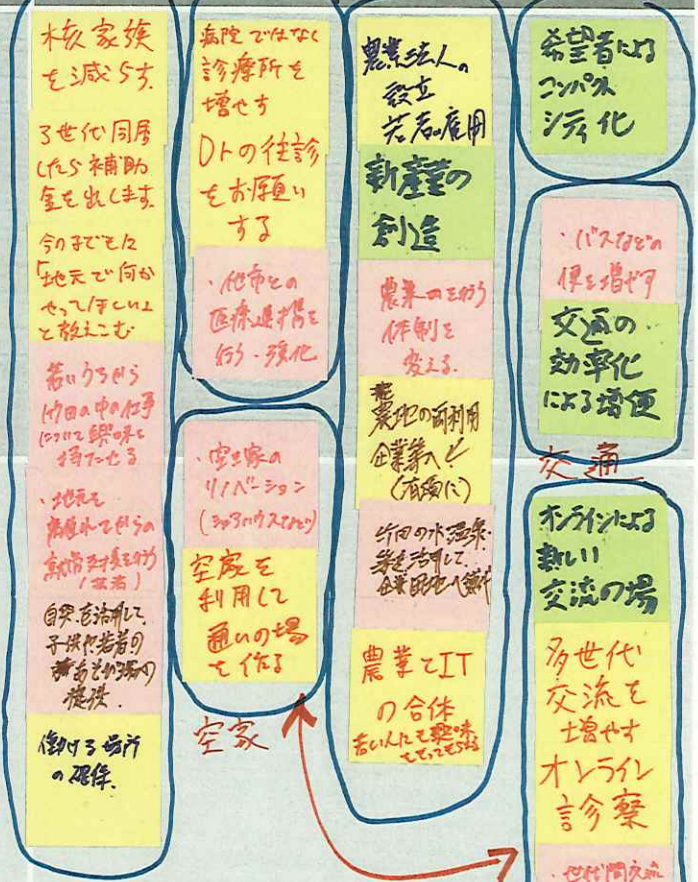 核家族
を減らす.
3世代同居
したら補助
金を出します.
今の子どもに
「地元で何か
やってほしい」
と教えこむ
若いうちから
竹田の中の仕事
について興味を
持たせる
・地元を
離れてからの
就労支援を行う
自然を活用して、
子供や若者の
あそび場の
提供.
働ける場所
の確保.
病院ではなく
診療所を
増やす
Drの往診
をお願い
する
・他市との
医療連携を
行う・強化
・空き家の
リノベーション
(シェアハウスなど)
空家を
利用して
通いの場
を作る
空家
農業法人の
設立
若者の雇用
新産業の
創造
農業を行う
体制を
変える.
農地の再利用
企業等へ!
(有効に)
竹田の水・温泉・
等を活用して.
企業団地へ
農業とIT
の合体
若い人にも興味
をもってもらう
希望者による
コンパクト
シティ化
・バスなどの
便を増やす
交通の
効率化
による増便
交通
オンラインによる
新しい
交流の場
多世代
交流を
増やす
オンライン
診察
・世代間交流